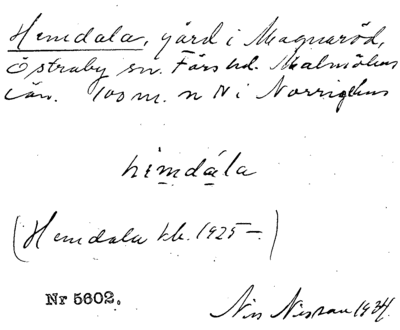 Hemdala, gård i Magnaröd,
Östraby sn. Färs hd. Malmöhus
Län. 100 m. n N i
hèmdála
(Hemdala kb. 1925 –)
Nr 5602.
Nils Nilsson 1934.